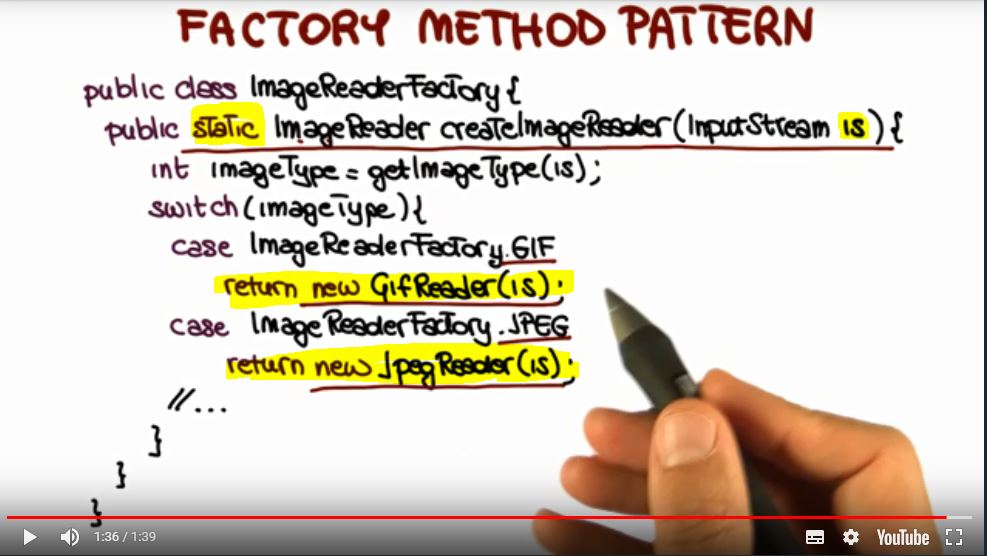 FACTORY METHOD PATTERN
public class ImageReaderFactory {
public static ImageReader createImageReader(InputStream is) {
int imageType = getImageType(is);
switch(imageType){
case ImageReaderFactory.GIF
return new GifReader(is);
case ImageReaderFactory.JPEG
return new JpegReader(is);
//...
}
}
}
1:36 / 1:39
YouTube